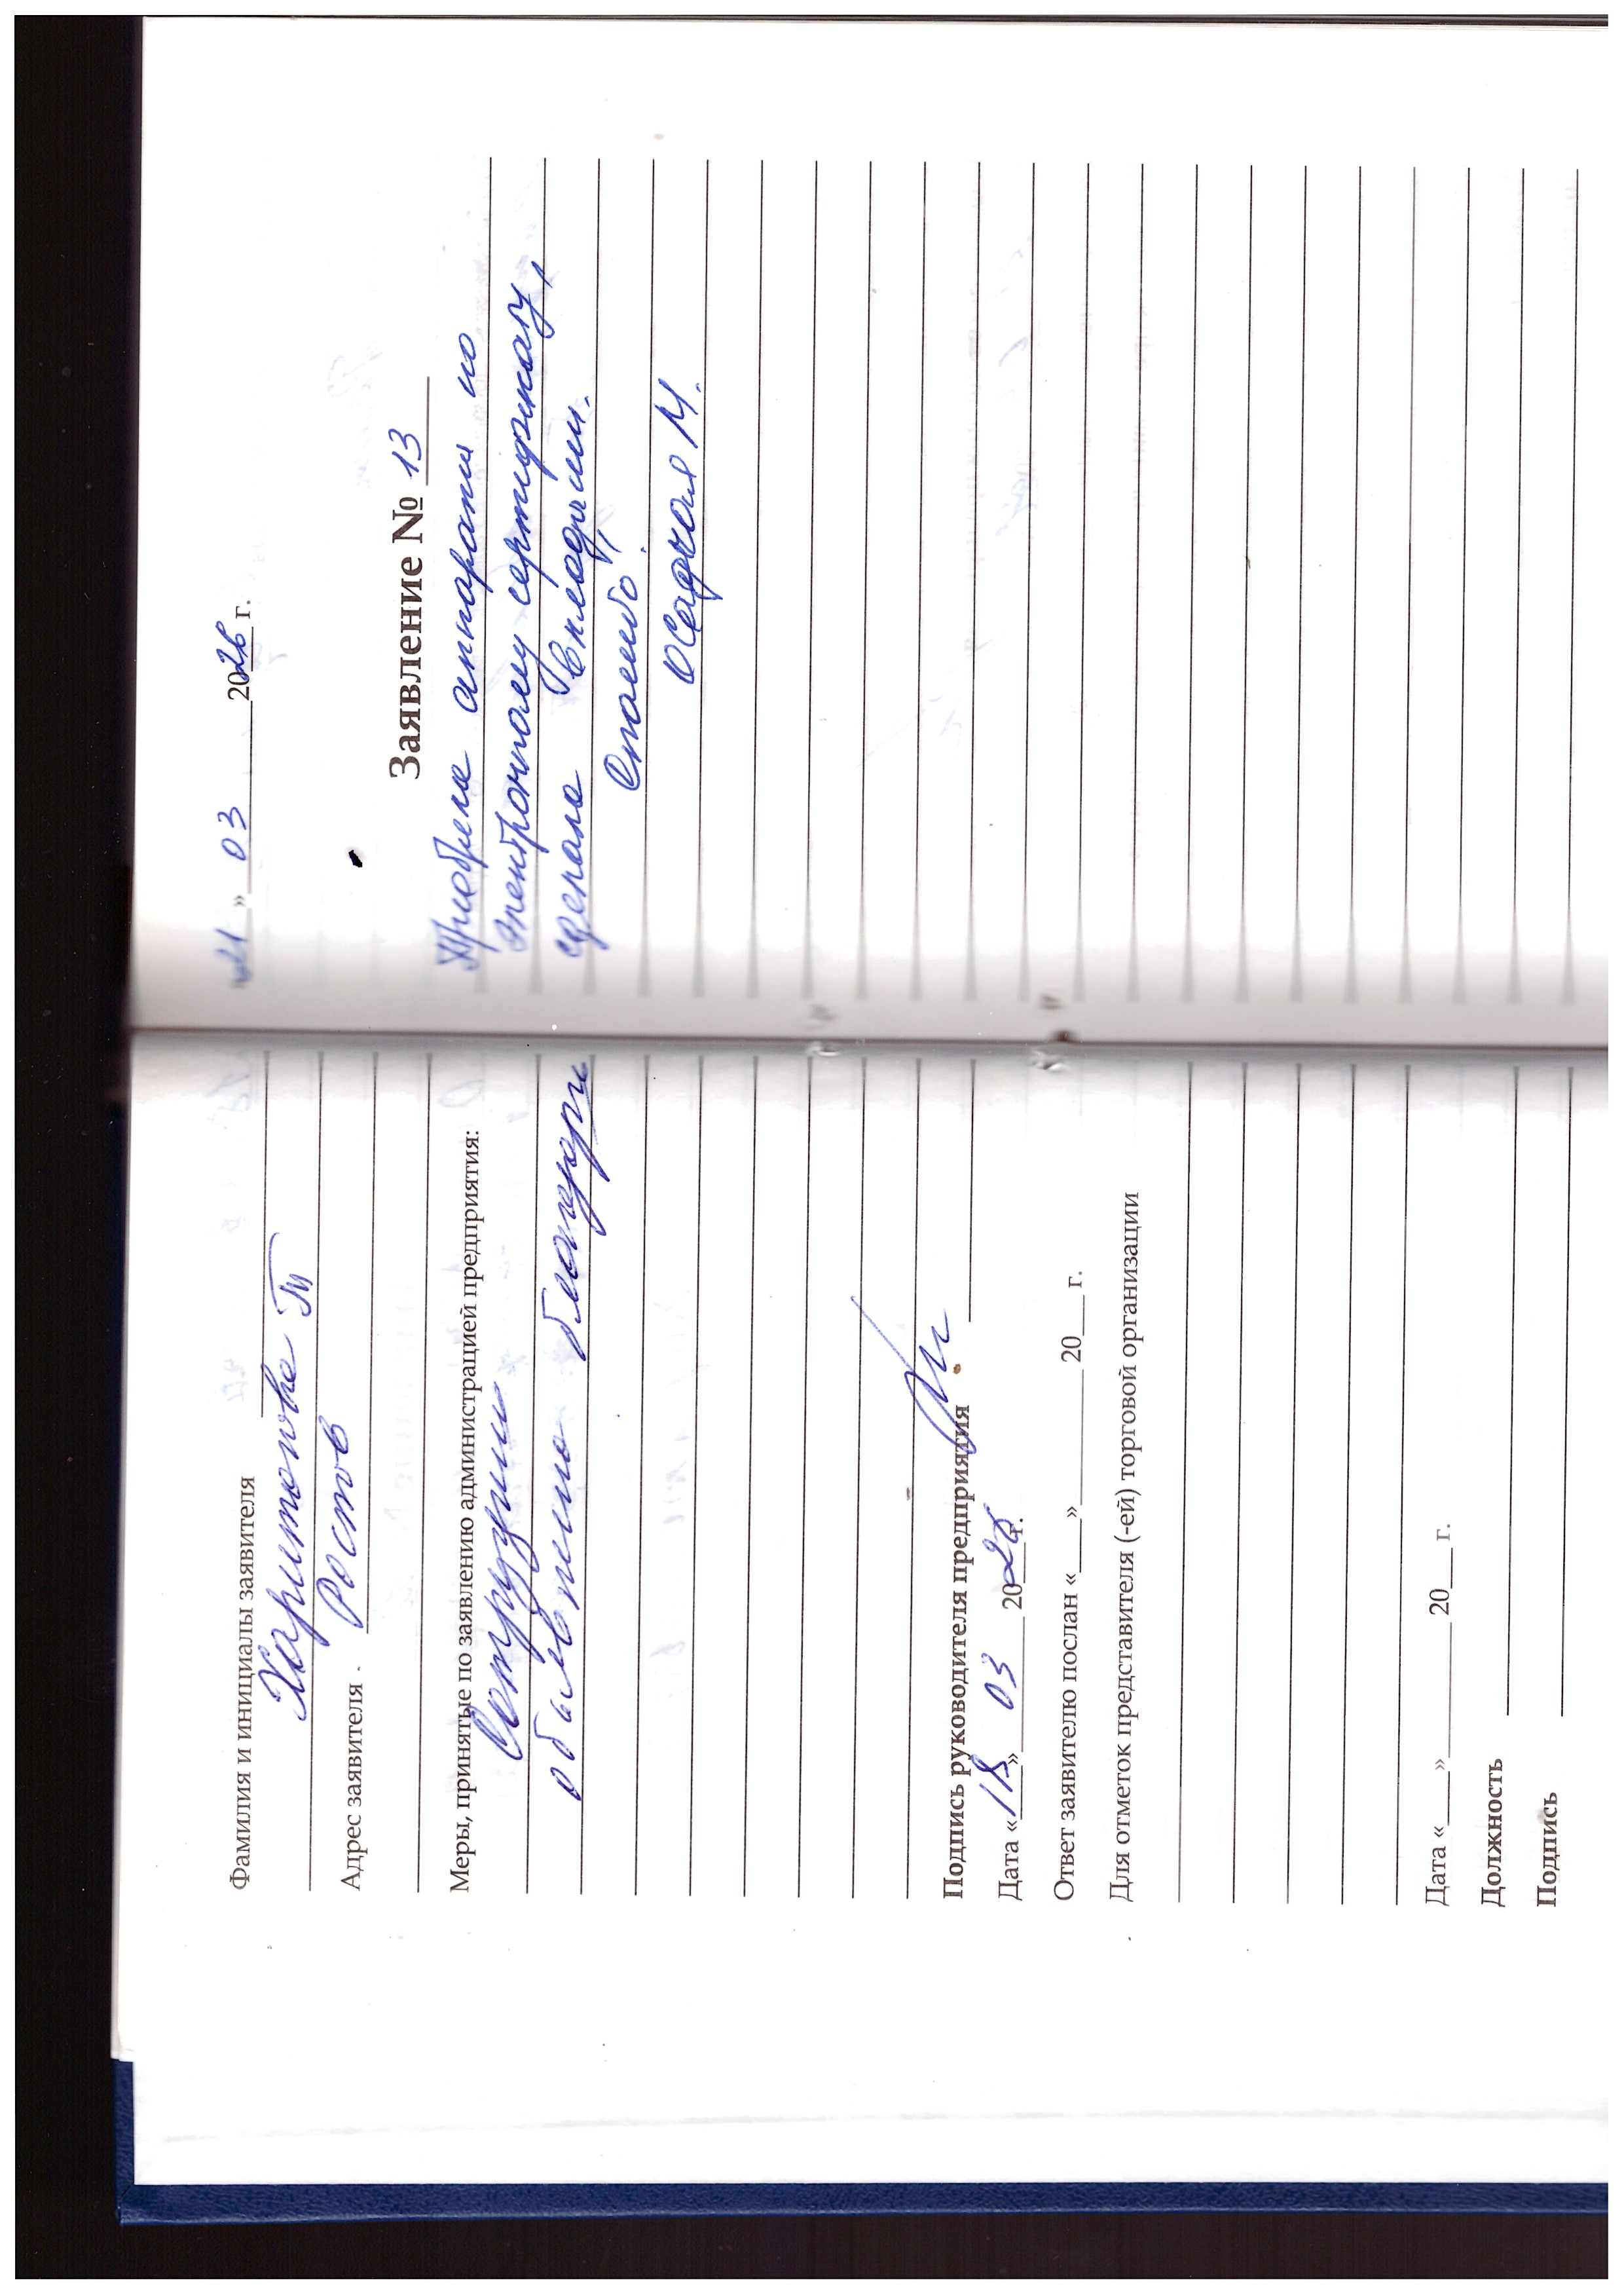 Фамилия и инициалы заявителя
Харитонова Т
Адрес заявителя Ростов
Меры, принятые по заявлению администрацией предприятия:
Сотрудник
объявлено
Подпись руководителя предприятия
Дата «18» 03 2026 г.
Ответ заявителю послан «___» ________ 20___ г.
Для отметок представителя (-ей) торговой организации
Дата «___» ________ 20___ г.
Должность
Подпись
21 » 03 2026 г.
Заявление № 13
Приобрела аппараты по
электронному сертификату,
сделала
Спасибо.
Осадчая М.